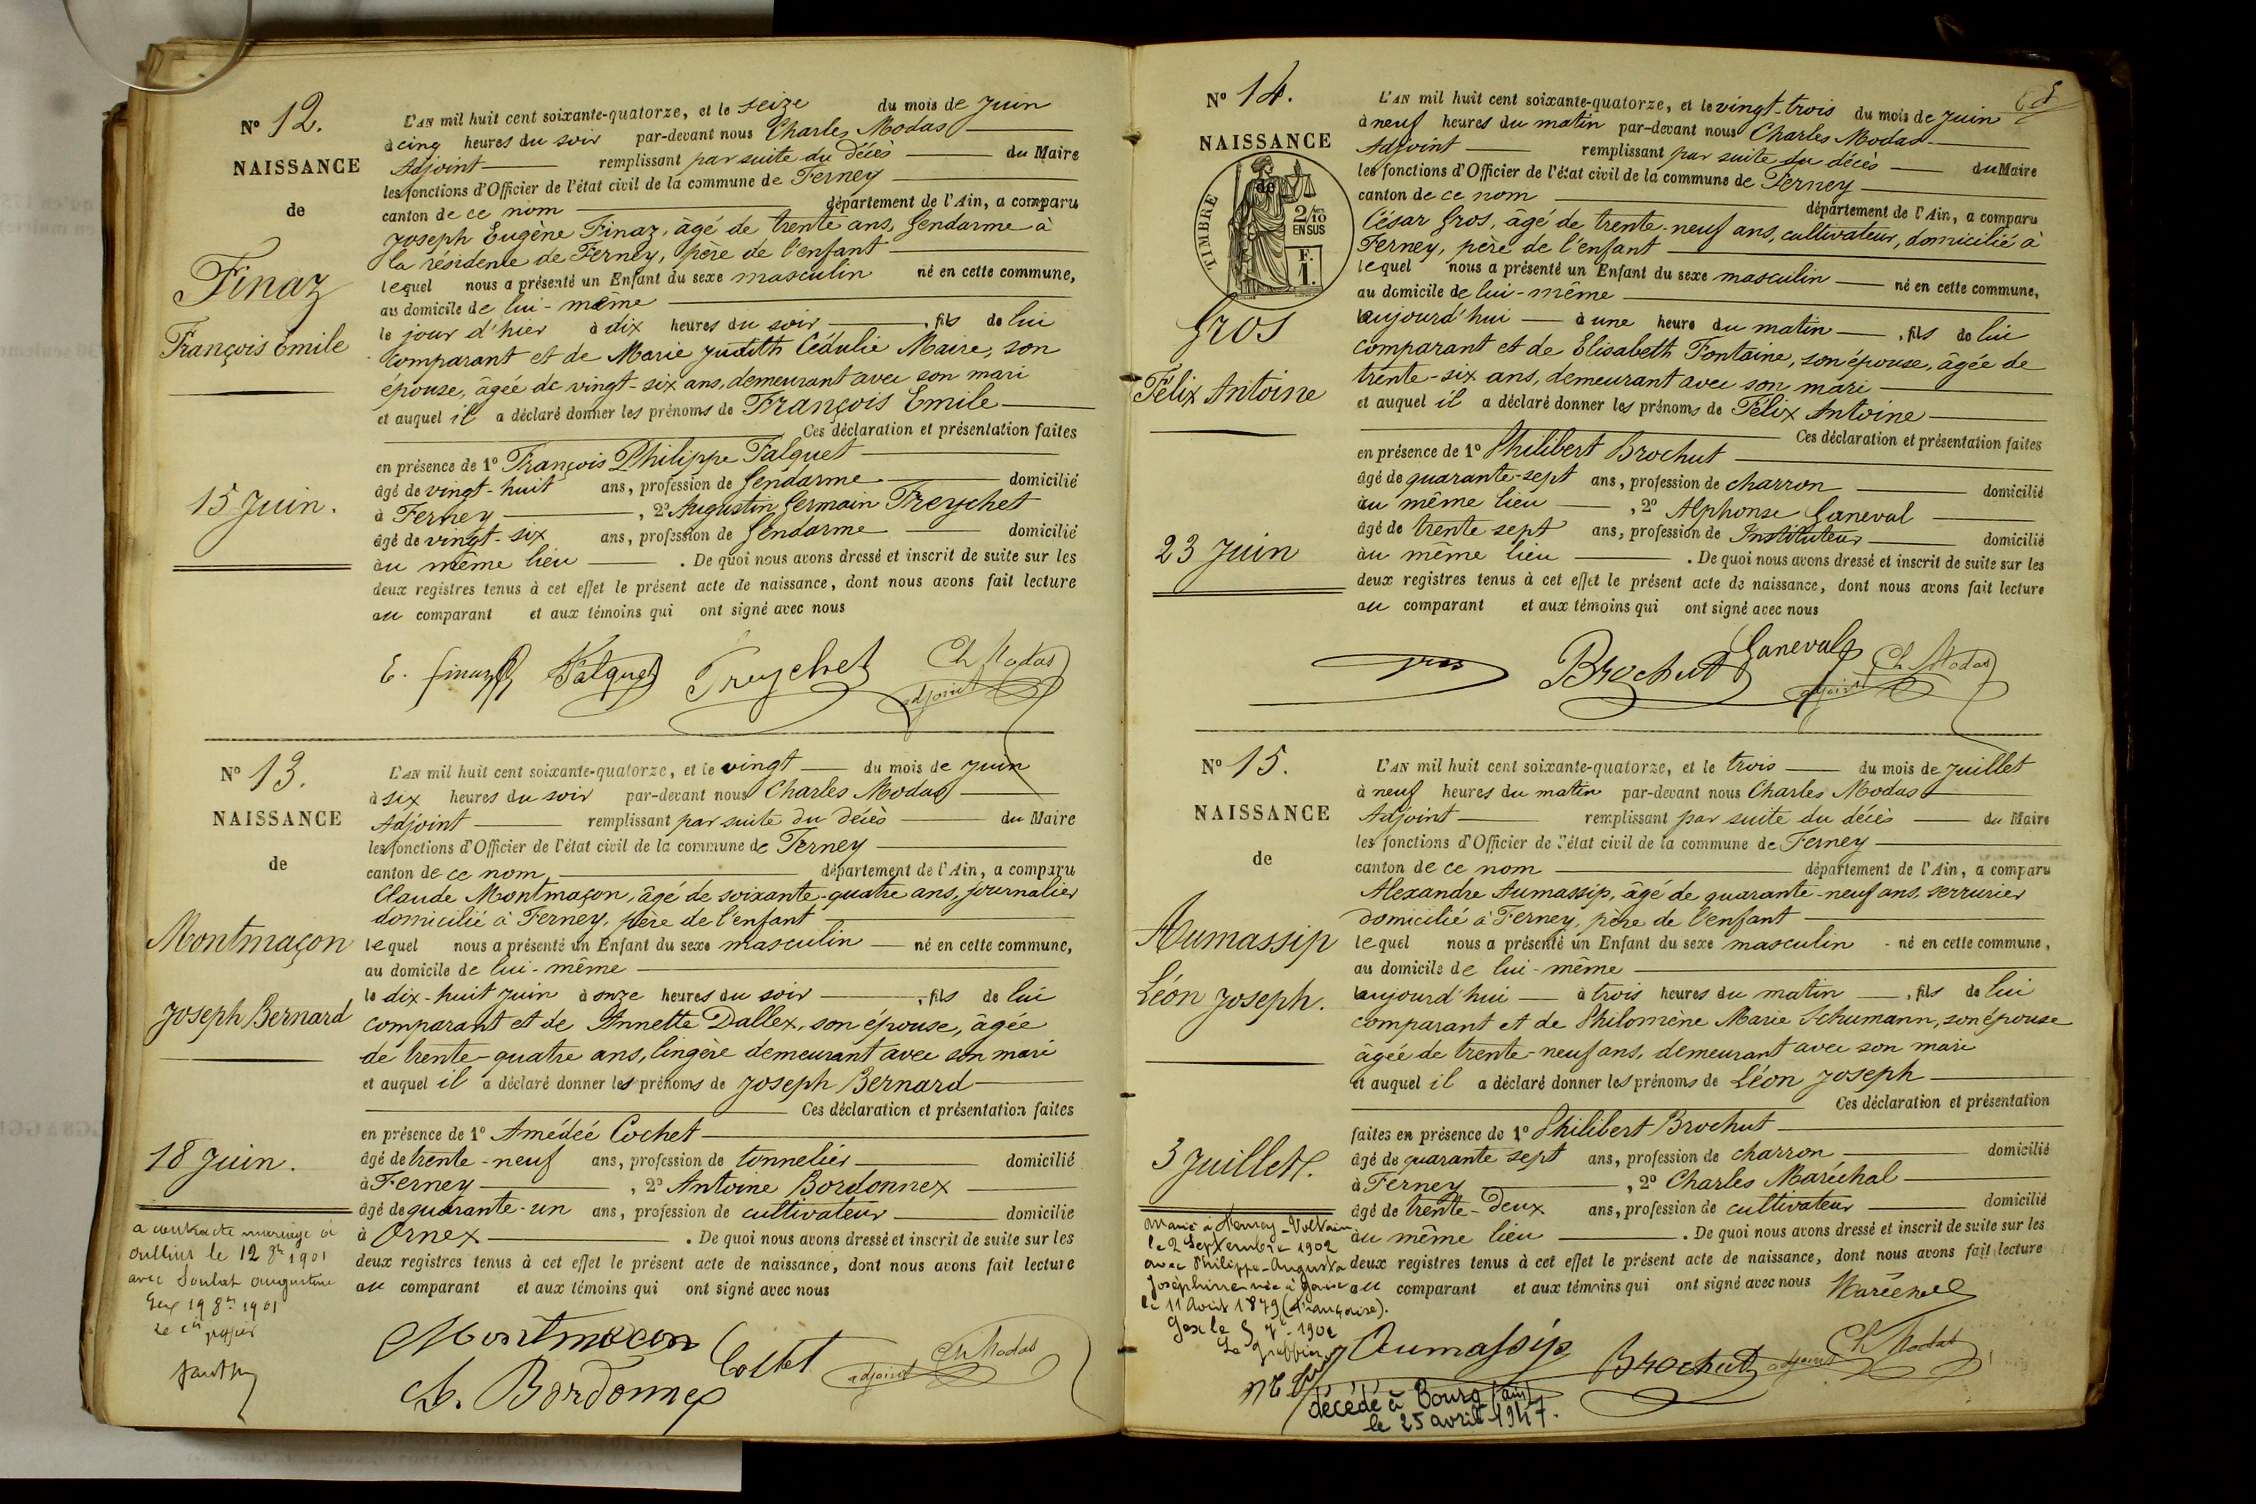 N° 12.
NAISSANCE
de
Finaz
François Emile
15 Juin.
L'AN mil huit cent soixante-quatorze, et le seize du mois de Juin
à cinq heures du soir par-devant nous Charles Modas
Adjoint remplissant par suite du décès du Maire
les fonctions d'Officier de l'état civil de la commune de Ferney
canton de ce nom département de l'Ain, a comparu
Joseph Eugène Finaz, âgé de trente ans, Gendarme à
la résidence de Ferney, père de l'enfant
lequel nous a présenté un Enfant du sexe masculin né en cette commune,
au domicile de lui-même
le jour d'hier à dix heures du soir, fils de lui
comparant et de Marie Judith Cédulie Maire, son
épouse, âgée de vingt-six ans, demeurant avec son mari
et auquel il a déclaré donner les prénoms de François Emile
Ces déclaration et présentation faites
en présence de 1° François Philippe Falquet
âgé de vingt-huit ans, profession de Gendarme domicilié
à Ferney, 2° Augustin Germain Treychet
âgé de vingt-six ans, profession de Gendarme domicilié
au même lieu. De quoi nous avons dressé et inscrit de suite sur les
deux registres tenus à cet effet le présent acte de naissance, dont nous avons fait lecture
au comparant et aux témoins qui ont signé avec nous
E. Finaz Falquet Treychet Ch Modas
adjoint
N° 13.
NAISSANCE
de
Montmaçon
Joseph Bernard
18 Juin.
a contracté mariage à
Oullins le 12 8bre 1901
avec Soulat Augustine
Gex 19 8bre 1901
Le
L'AN mil huit cent soixante-quatorze, et le vingt du mois de Juin
à six heures du soir par-devant nous Charles Modas
Adjoint remplissant par suite du décès du Maire
les fonctions d'Officier de l'état civil de la commune de Ferney
canton de ce nom département de l'Ain, a comparu
Claude Montmaçon, âgé de soixante-quatre ans, journalier
domicilié à Ferney, père de l'enfant
lequel nous a présenté un Enfant du sexe masculin né en cette commune,
au domicile de lui-même
le dix-huit Juin à onze heures du soir, fils de lui
comparant et de Annette Dallex, son épouse, âgée
de trente-quatre ans, lingère demeurant avec son mari
et auquel il a déclaré donner les prénoms de Joseph Bernard
Ces déclaration et présentation faites
en présence de 1° Amédée Cochet
âgé de trente-neuf ans, profession de tonnelier domicilié
à Ferney, 2° Antoine Bordonnex
âgé de quarante-un ans, profession de cultivateur domicilié
à Ornex. De quoi nous avons dressé et inscrit de suite sur les
deux registres tenus à cet effet le présent acte de naissance, dont nous avons fait lecture
au comparant et aux témoins qui ont signé avec nous
Montmacon Cochet Ch Modas
adjoint
A. Bordonnex
N° 14.
NAISSANCE
de
TIMBRE
2/10
EN SUS
F.
1.
Gros
Félix Antoine
23 Juin
L'AN mil huit cent soixante-quatorze, et le vingt-trois du mois de Juin
à neuf heures du matin par-devant nous Charles Modas
Adjoint remplissant par suite du décès du Maire
les fonctions d'Officier de l'état civil de la commune de Ferney
canton de ce nom département de l'Ain, a comparu
César Gros, âgé de trente-neuf ans, cultivateur, domicilié à
Ferney, père de l'enfant
lequel nous a présenté un Enfant du sexe masculin né en cette commune,
au domicile de lui-même
aujourd'hui à une heure du matin, fils de lui
comparant et de Elisabeth Fontaine, son épouse, âgée de
trente-six ans, demeurant avec son mari
et auquel il a déclaré donner les prénoms de Félix Antoine
Ces déclaration et présentation faites
en présence de 1° Philibert Brochut
âgé de quarante-sept ans, profession de charron domicilié
au même lieu, 2° Alphonse Ganeval
âgé de trente sept ans, profession de Instituteur domicilié
au même lieu. De quoi nous avons dressé et inscrit de suite sur les
deux registres tenus à cet effet le présent acte de naissance, dont nous avons fait lecture
au comparant et aux témoins qui ont signé avec nous
Brochut Ganeval Ch Modas
adjoint
N° 15.
NAISSANCE
de
Aumassip
Léon Joseph.
3 Juillet.
Marié à Ferney-Voltaire
le 2 Septembre 1902
avec Philippe-Augusta
Joséphine née à
le 11 Août 1879 (Française).
Gex le 5 7bre 1902
Le Greffier
L'AN mil huit cent soixante-quatorze, et le trois du mois de Juillet
à neuf heures du matin par-devant nous Charles Modas
Adjoint remplissant par suite du décès du Maire
les fonctions d'Officier de l'état civil de la commune de Ferney
canton de ce nom département de l'Ain, a comparu
Alexandre Aumassip, âgé de quarante-neuf ans, serrurier
domicilié à Ferney, père de l'enfant
lequel nous a présenté un Enfant du sexe masculin - né en cette commune,
au domicile de lui-même
aujourd'hui à trois heures du matin, fils de lui
comparant et de Philomène Marie Schumann, son épouse
âgée de trente-neuf ans, demeurant avec son mari
et auquel il a déclaré donner les prénoms de Léon Joseph
Ces déclaration et présentation
faites en présence de 1° Philibert Brochut
âgé de quarante sept ans, profession de charron domicilié
à Ferney, 2° Charles Maréchal
âgé de trente-deux ans, profession de cultivateur domicilié
au même lieu. De quoi nous avons dressé et inscrit de suite sur les
deux registres tenus à cet effet le présent acte de naissance, dont nous avons fait lecture
au comparant et aux témoins qui ont signé avec nous Maréchal
Aumassip Brochut adjoint Ch Modas
décédé à Bourg (ain)
le 25 avril 1947.